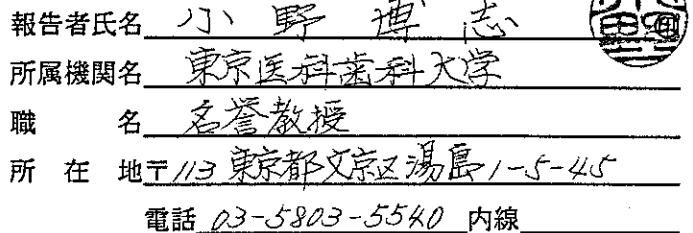 報告者氏名 小野博志 ㊞
所属機関名 東京医科歯科大学
職名 名誉教授
所在地 〒113 東京都文京区湯島1-5-45
電話 03-5803-5540 内線